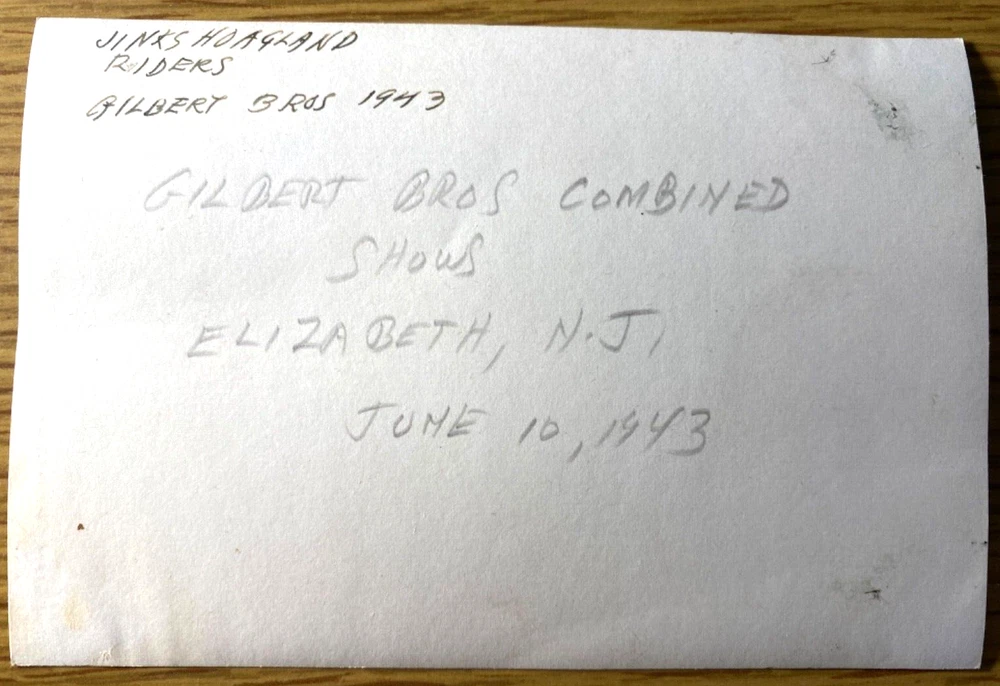 JINKS HOAGLAND
RIDERS
GILBERT BROS 1943
GILBERT BROS COMBINED
SHOWS
ELIZABETH, N.J,
JUNE 10, 1943